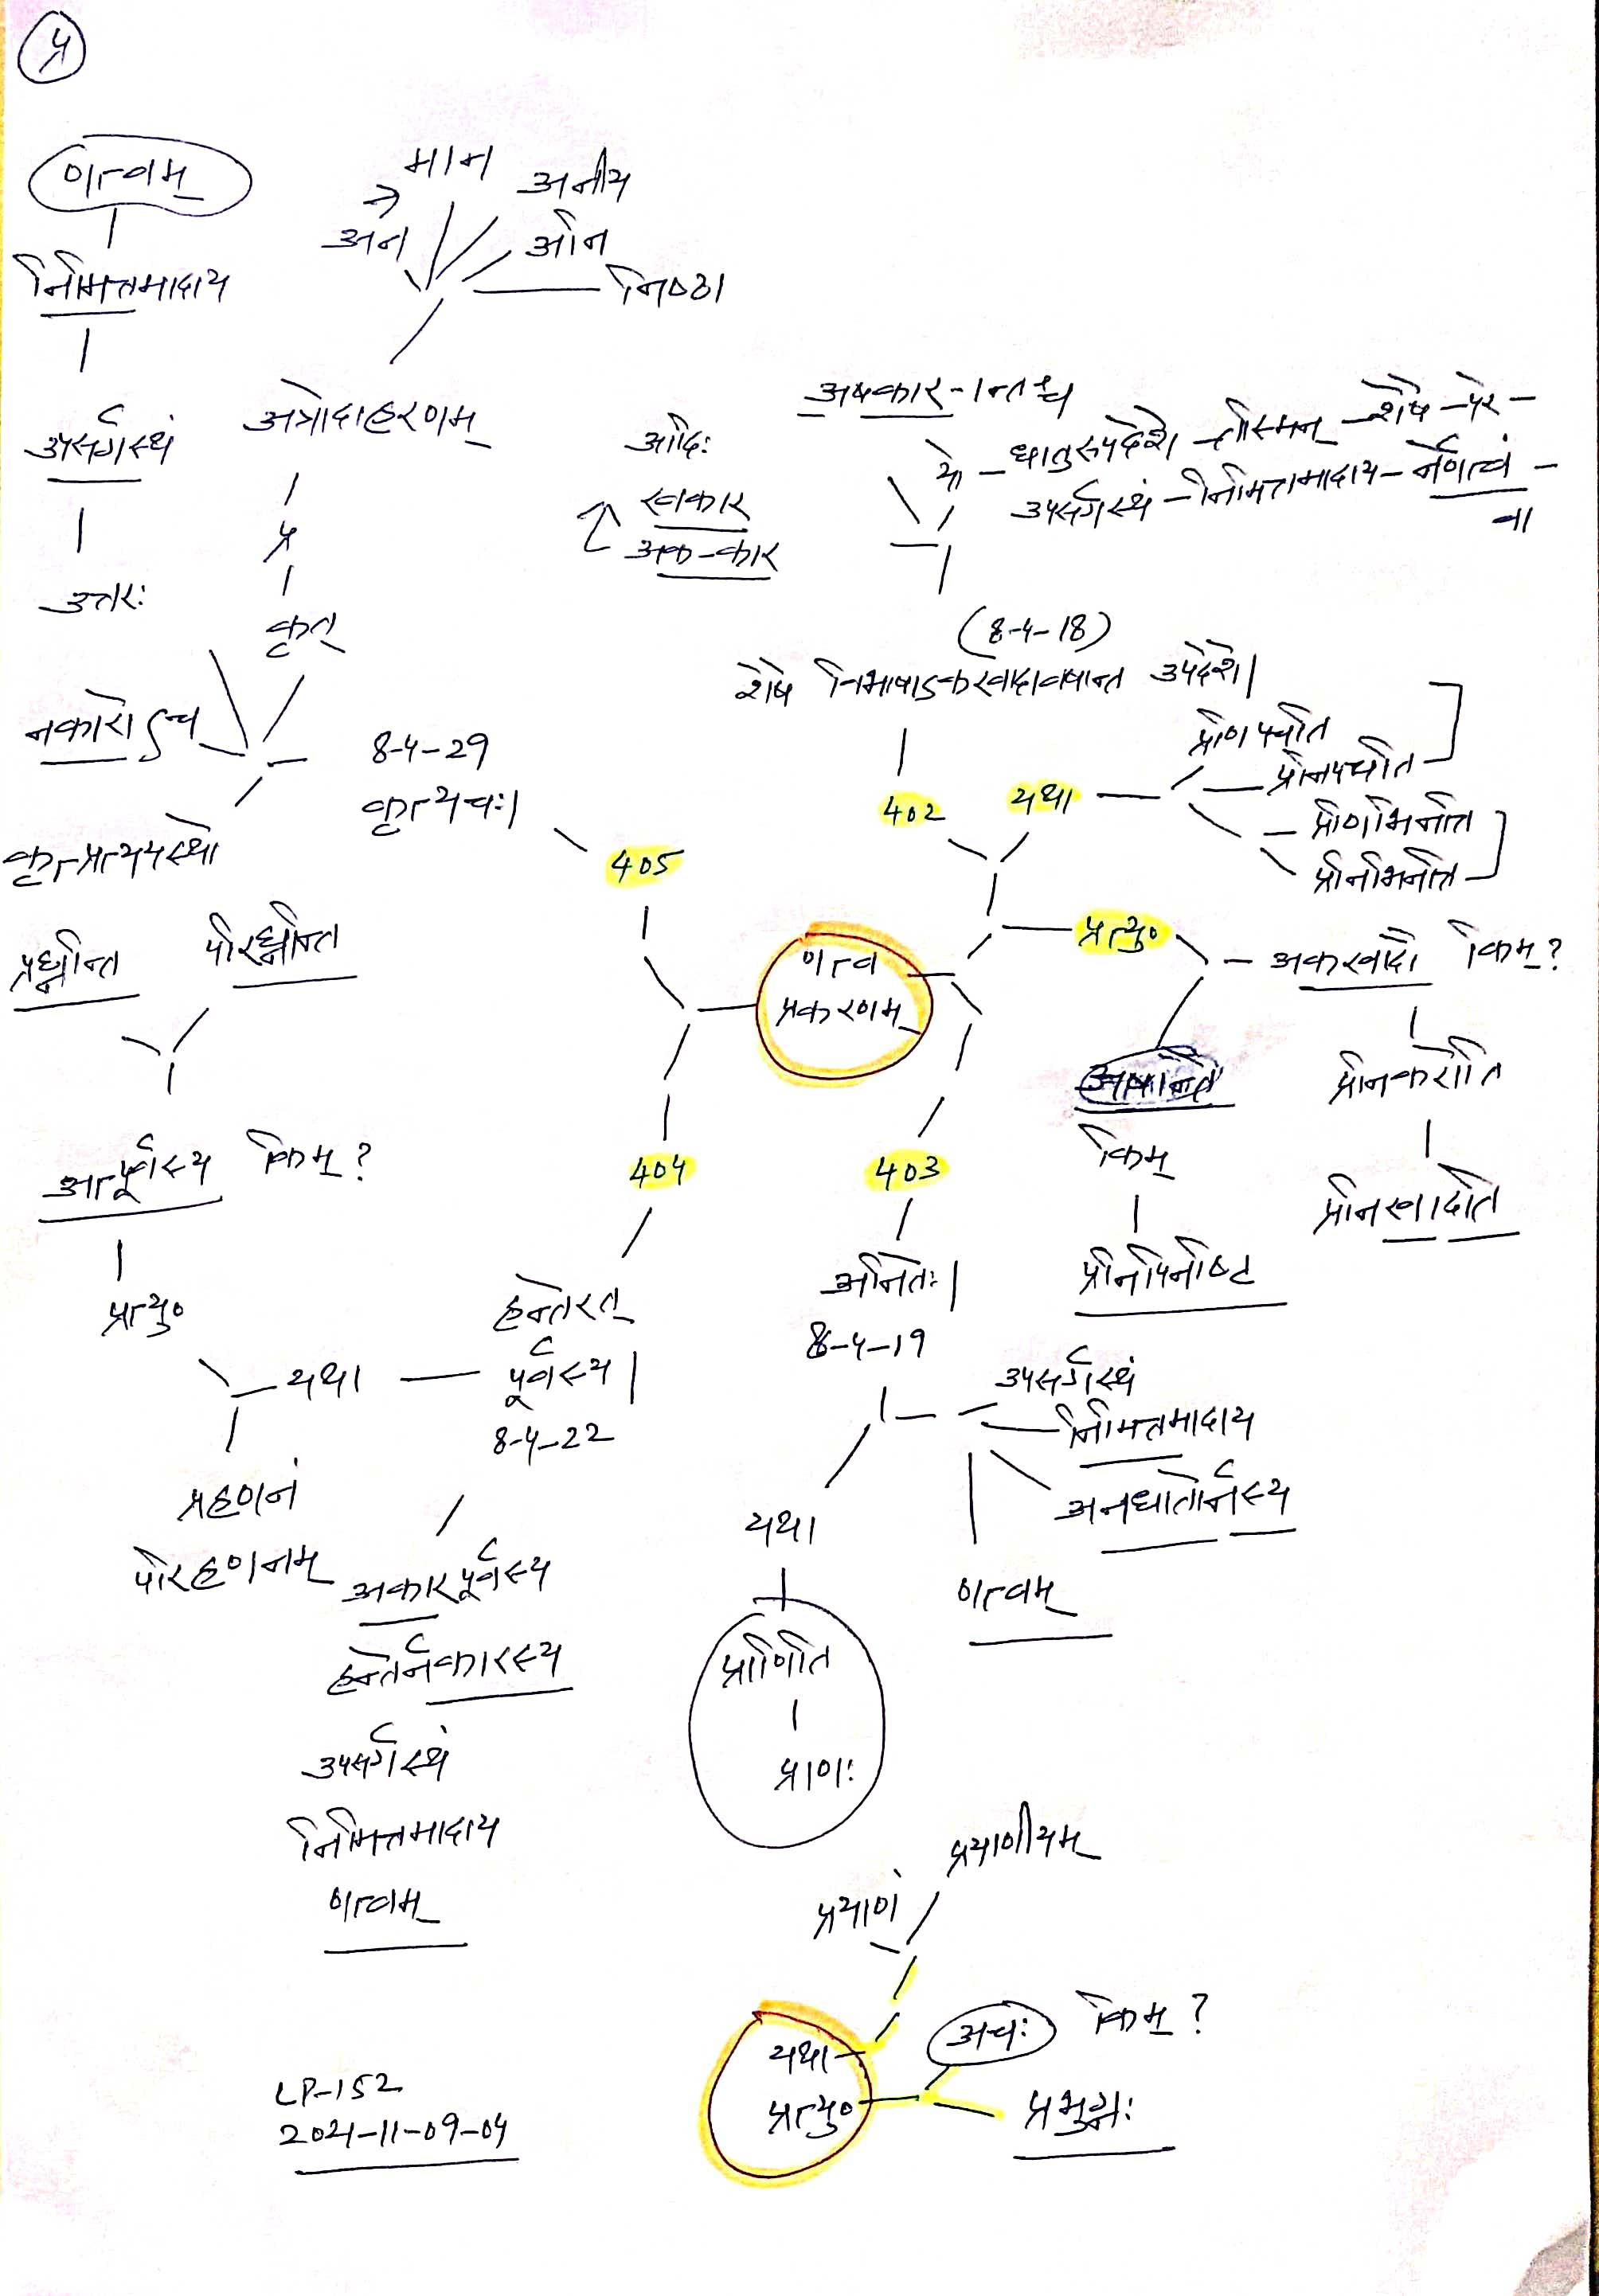 प्र
णत्वम्
निमित्तमादाय
उपसर्गस्थं
उत्तरः
नकारोऽच
कृत्प्रत्ययस्थो
मान
अन
अनीय
अनि
निष्ठा
अत्रोदाहरणम्
प्र
कृत्
8-4-29
कृत्यचः।
405
आदिः
खकार
अक-कार
अषकारान्तश्च
यो - धातुरुपदेशे - तस्मिन् - शेषे - परे -
उपसर्गस्थं - निमित्तमादाय - नेर्णत्वं -
वा
(8-4-18)
शेषे विभाषाऽकखादावषान्त उपदेशे।
402
यथा
प्रणिपचति
प्रनिपचति
प्रणिभिनत्ति
प्रनिभिनत्ति
प्रत्यु०
अकखादौ किम्?
प्रनिकरोति
प्रनिखादति
अषान्ते
किम्
प्रनिपिनष्टि
णत्व
प्रकरणम्
403
अनितेः।
8-4-19
उपसर्गस्थं
निमित्तमादाय
अनधातोर्नस्य
णत्वम्
यथा
प्राणिति
प्राणः
404
हन्तेरत्
पूर्वस्य।
8-4-22
यथा
प्रहणनं
परिहणनम्
प्रत्यु०
अत्पूर्वस्य किम्?
प्रघ्नन्ति
परिघ्नन्ति
अकारपूर्वस्य
हन्तेर्नकारस्य
उपसर्गस्थं
निमित्तमादाय
णत्वम्
प्रयाणं
प्रयाणीयम्
यथा
प्रत्यु०
अचः किम्?
प्रभुग्नः
LP-152
2021-11-09-04